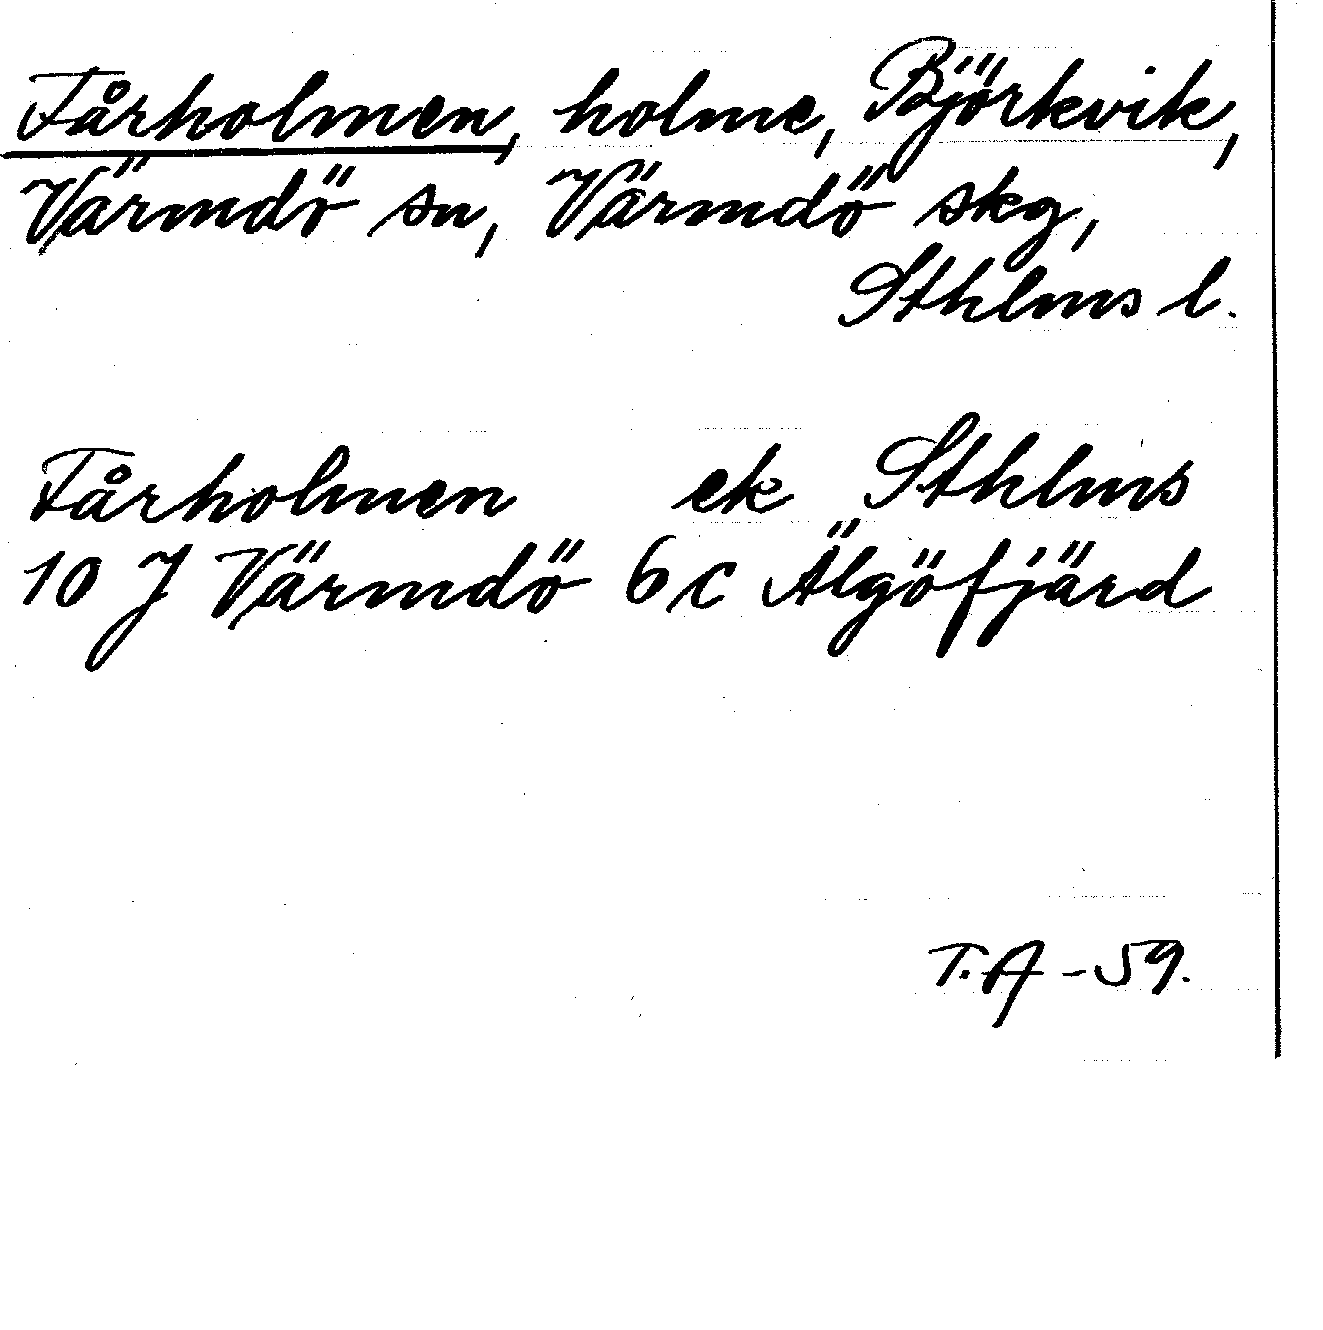 Fårholmen, holme, Björkvik,
Värmdö sn, Värmdö skg,
Sthlms l.
Fårholmen ek Sthlms
10 J Värmdö 6 c Älgöfjärd
T.A -59.